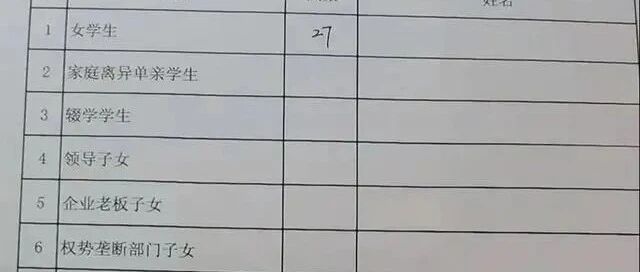 姓名
1 女学生 27
2 家庭离异单亲学生
3 辍学学生
4 领导子女
5 企业老板子女
6 权势垄断部门子女